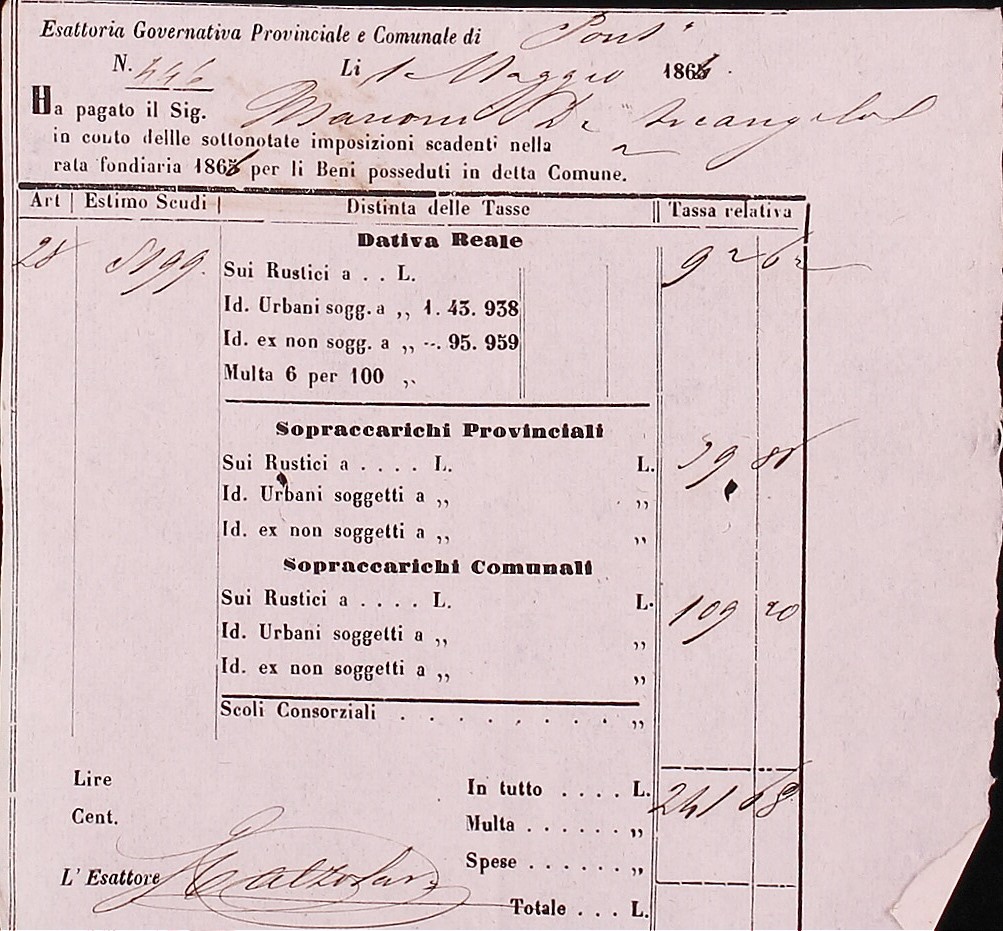 Esattoria Governativa Provinciale e Comunale di
N. 446 Li 1 Maggio 1864.
Ha pagato il Sig. Marconi Di Arcangelo
in couto dellle sottonotate imposizioni scadenti nella
rata fondiaria 1864 per li Beni posseduti in detta Comune.
Art | Estimo Scudi | Distinta delle Tasse || Tassa relativa
Dativa Reale
28 5199. 92 62
Sui Rustici a . . L.
Id. Urbani sogg. a ,, 1. 43. 938
Id. ex non sogg. a ,, --. 95. 959
Multa 6 per 100 ,,
Sopraccarichi Provinciali
Sui Rustici a . . . . L. L. 39 86
Id. Urbani soggetti a ,, ,,
Id. ex non soggetti a ,, ,,
Sopraccarichi Comunali
Sui Rustici a . . . . L. L. 109 20
Id. Urbani soggetti a ,, ,,
Id. ex non soggetti a ,, ,,
Scoli Consorziali . . . . . . . . ,,
Lire
In tutto . . . . L. 241 68
Cent.
Multa . . . . . . ,,
Spese . . . . . . ,,
L' Esattore
Totale . . . L.